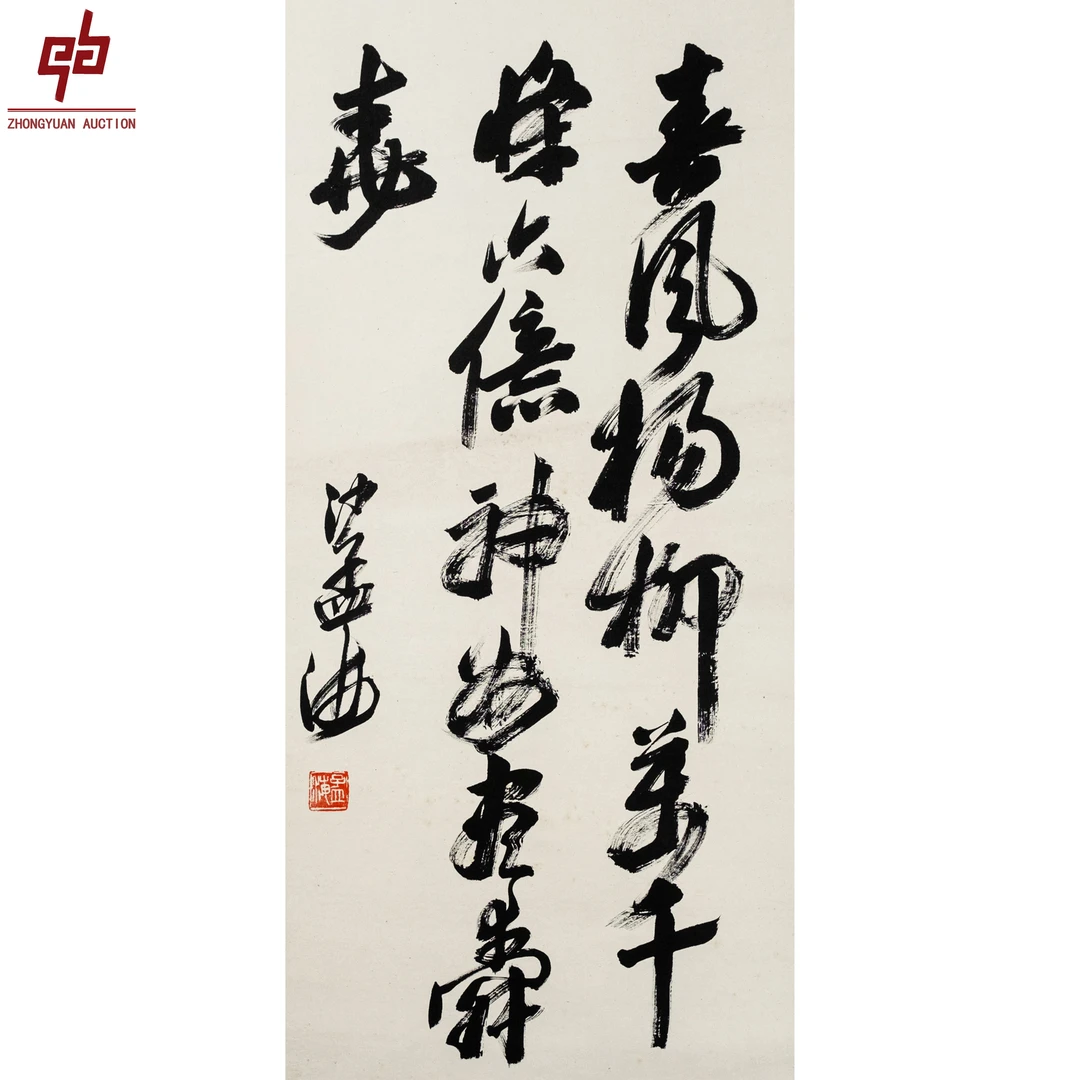 ZHONGYUAN AUCTION
春風楊柳萬千
條六億神州盡舜
堯
沙孟海
孟海